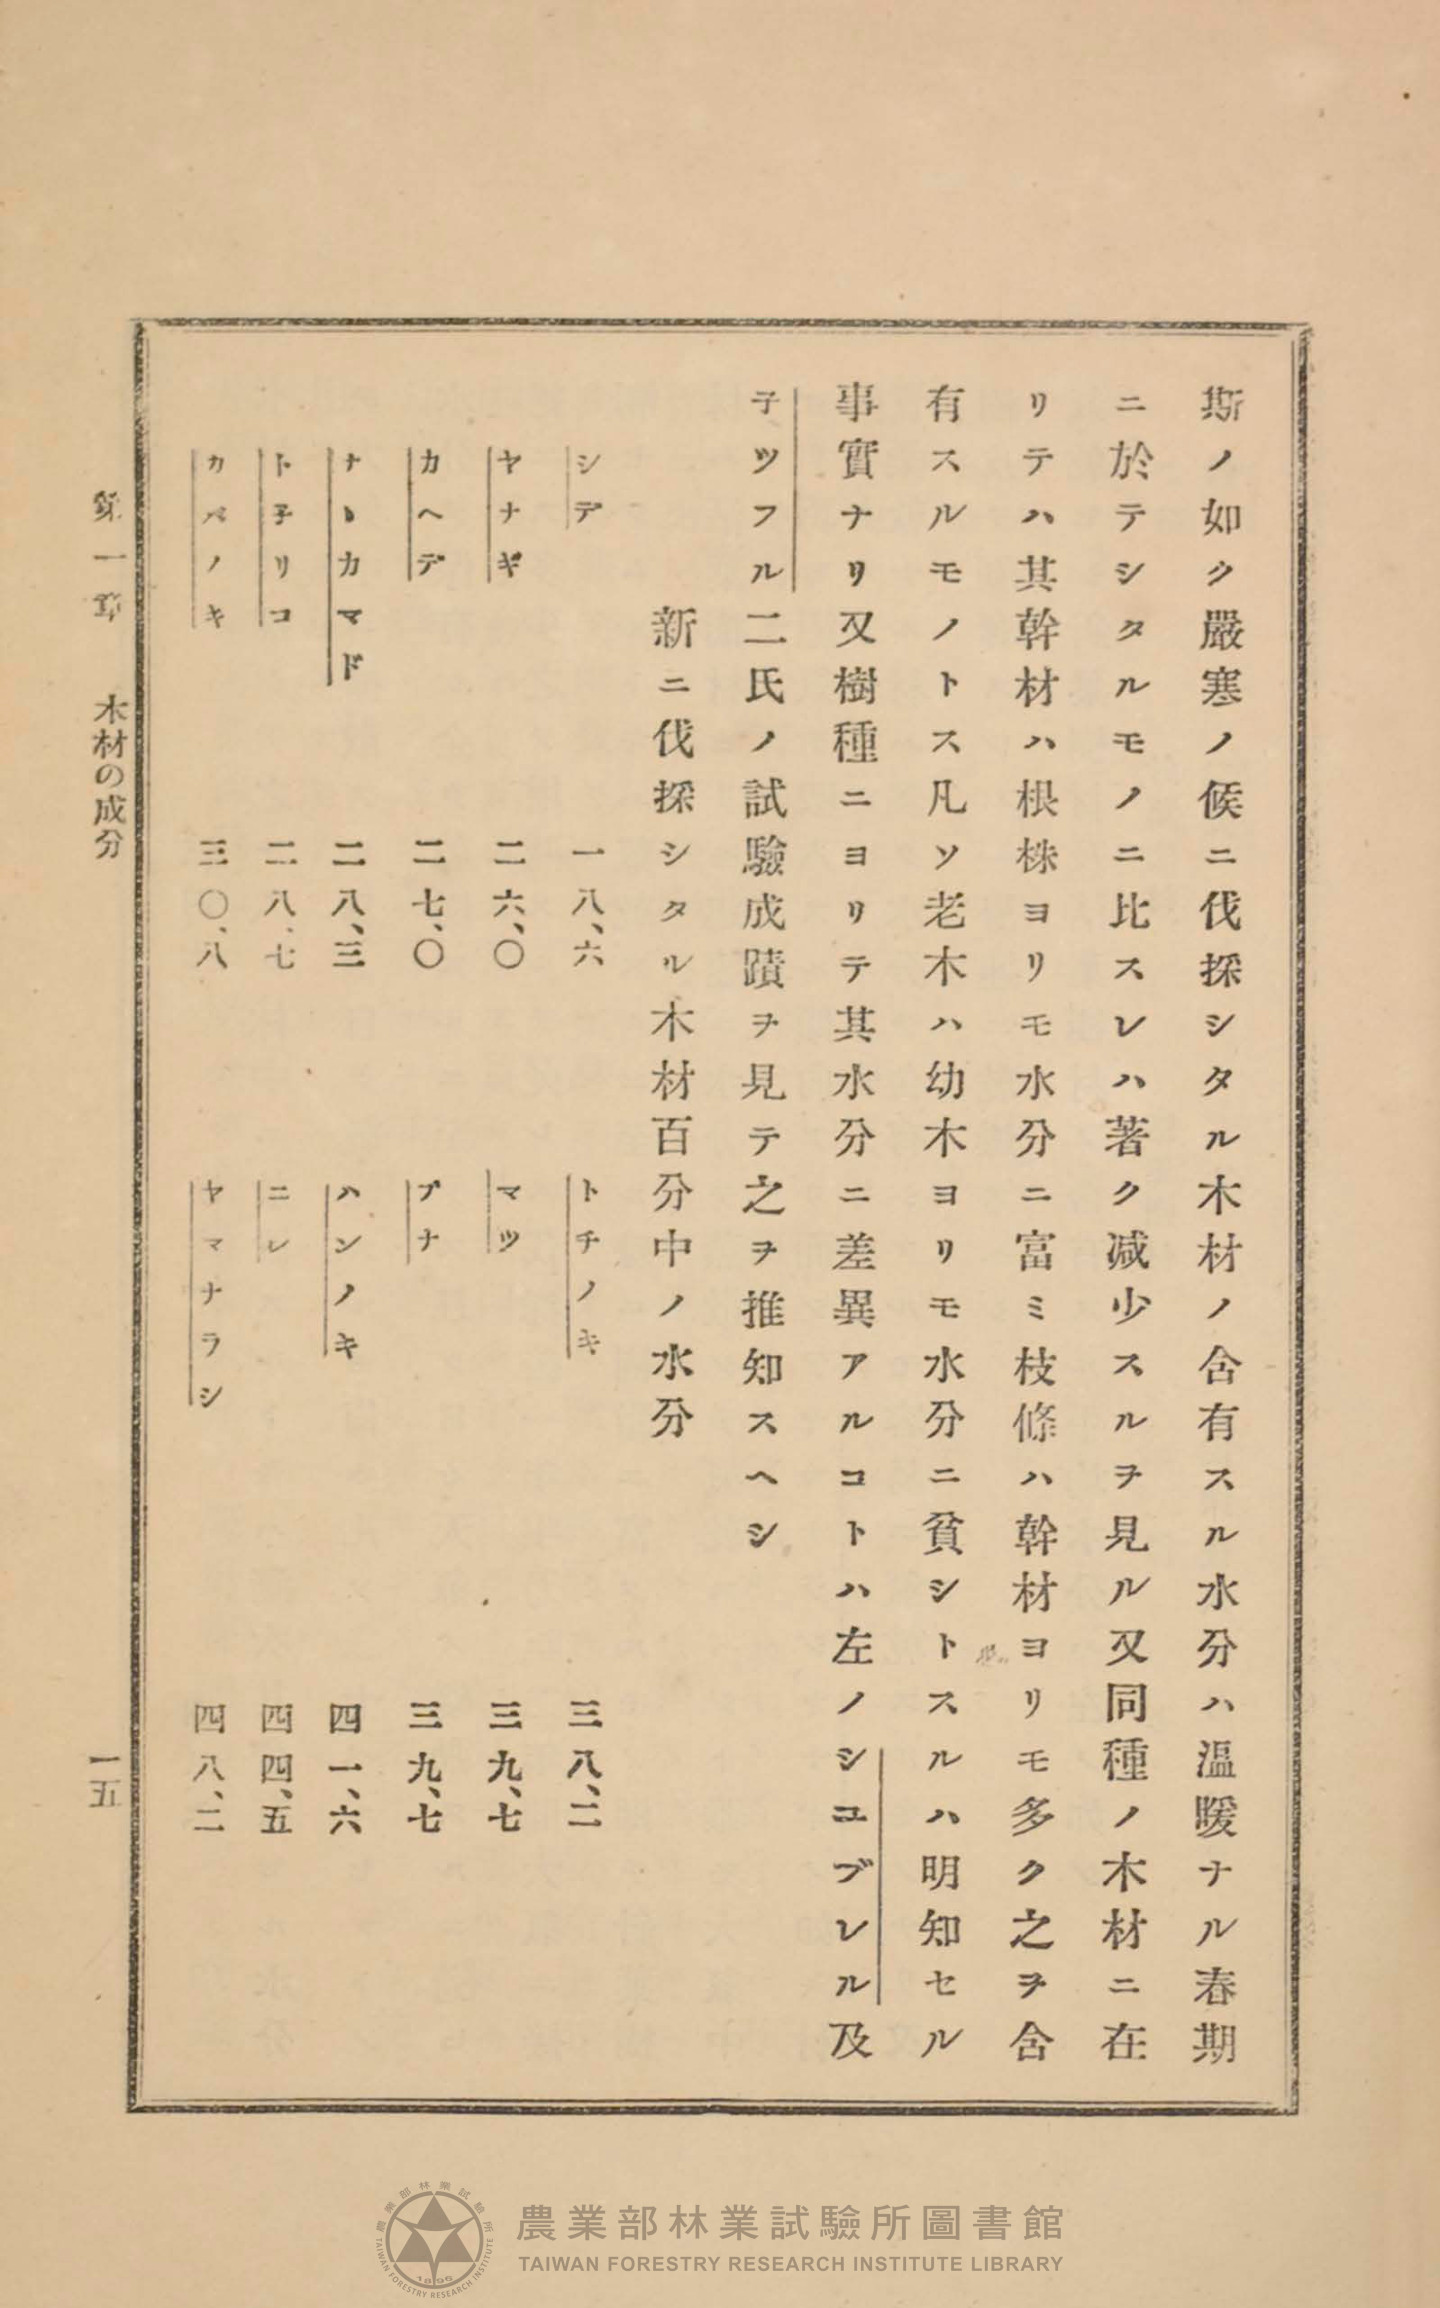 斯ノ如ク嚴寒ノ候ニ伐採シタル木材ノ含有スル水分ハ温暖ナル春期
ニ於テシタルモノニ比スレハ著ク减少スルヲ見ル又同種ノ木材ニ在
リテハ其幹材ハ根株ヨリモ水分ニ富ミ枝條ハ幹材ヨリモ多ク之ヲ含
有スルモノトス凡ソ老木ハ幼木ヨリモ水分ニ貧シトスルハ明知セル
事實ナリ又樹種ニヨリテ其水分ニ差異アルコトハ左ノシユブレル及
子ツフル二氏ノ試驗成蹟ヲ見テ之ヲ推知スヘシ
新ニ伐採シタル木材百分中ノ水分
シデ 一八、六 トチノキ 三八、二
ヤナギ 二六、〇 マツ 三九、七
カヘデ 二七、〇 ブナ 三九、七
ナヽカマド 二八、三 ハンノキ 四一、六
ト子リコ 二八、七 ニレ 四四、五
カバノキ 三〇、八 ヤマナラシ 四八、二
第一章 木材の成分 一五
農業部林業試驗所圖書館
TAIWAN FORESTRY RESEARCH INSTITUTE LIBRARY
農業部林業試驗所
TAIWAN FORESTRY RESEARCH INSTITUTE
1896